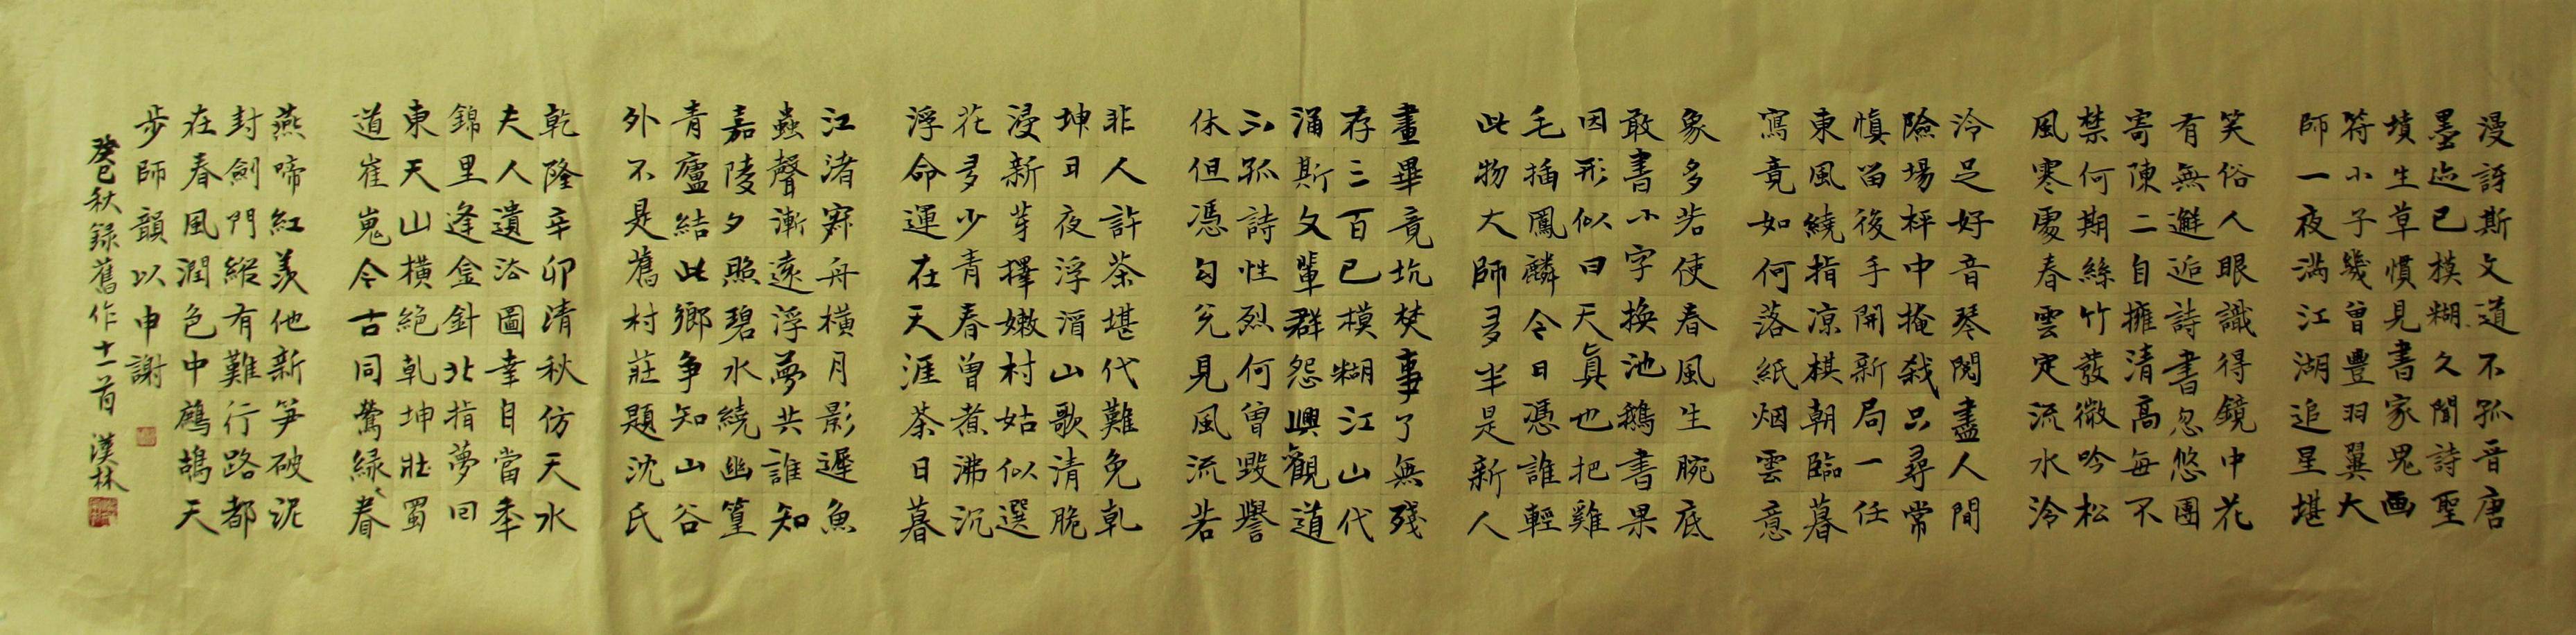 漫訝斯文道不孤音唐
墨迹已模糊久聞詩聖
墳生草慣見書家鬼画
符小子幾曾豐羽翼大
師一夜满江湖追星堪
笑俗人眼識得鏡中花
有無邂逅詩書忽悠團
寄陳二自擁清高每不
禁何期絲竹發微吟松
風寒處春雲定流水泠
泠足好音琴閲盡人間
險場枰中掩殺只尋常
慎留後手開新局一任
東風繞指凉棋朝臨暮
寫竟如何落紙烟雲意
象多若使春風生腕底
敢書小字換池鵝書果
因形似曰天真也把雞
毛插鳳麟今日憑誰輕
此物大師多半是新人
畫畢竟坑焚事了無殘
存三百已模糊江山代
涌斯文輩群怨興觀道
不孤詩性烈何曾毀譽
休但憑勾兑見風流若
非人許茶堪代難免乾
坤日夜浮湄山歌清脆
浸新芽擇嫩村姑似選
花多少青春曾煮沸沉
浮命運在天涯茶日暮
江渚寂舟橫月影遲魚
蟲聲漸遠浮夢共誰知
嘉陵夕照碧水繞幽篁
青廬結此鄉争知山谷
外不是舊村莊題沈氏
乾隆辛卯清秋仿天水
夫人遺法圖幸自當年
錦里逢金針北指夢回
東天山橫絶乾坤壯蜀
道崔嵬今古同鶯緑春
燕啼紅羨他新笋破泥
封劍門縱有難行路都
在春風潤色中鷓鴣天
步師韻以申謝
癸巳秋録舊作十一首 漢林